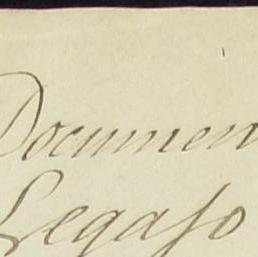 Documen
Legaſo